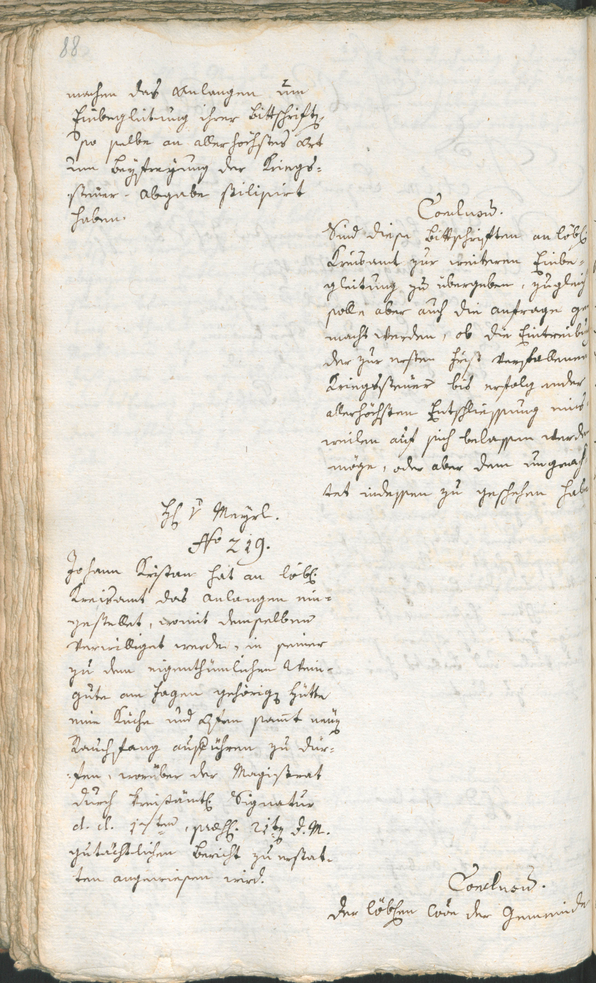 88.
machen das Anlangen um
Einbegleitung ihrer Bittschrift,
so selbe an allerhöchstes Ort
um Beyfreyung der Kriegs-
steuer-Abgabe stilisirt
haben.
Conclusum.
Sind diese Bittschriften an löbl.
Kreisamt zur weiteren Einbe-
gleitung zu übergeben, zugleich
solle aber auch die anfrage ge
macht werden, ob die Eintreibu
der zur ersten Frist verfallenen
Kriegssteuer bis erfolg ender
allerhöchsten Entschliessung
weilen auf sich belassen werde
möge, oder aber dem ungeach
tet indessen zu geschehen habe
H. v Mayrl.
No 219.
Johann Kristan hat an löbl.
Kreisamt das Anlangen ein-
gestellet, womit demselben
verwilliget werde, in seiner
zu dem eigenthümlichen Wein-
gute am Hagen gehörig Hütte
eine Küche und Ofen samt
Rauchfang aufführen zu dür-
fen, worüber der Magistrat
durch kreisämtl. Signatur
d. d. praes. 21ten d. M.
gutächtlichen Bericht zu erstat-
ten angewiesen wird.
Conclusum.
Der löblichen der Gemeinde